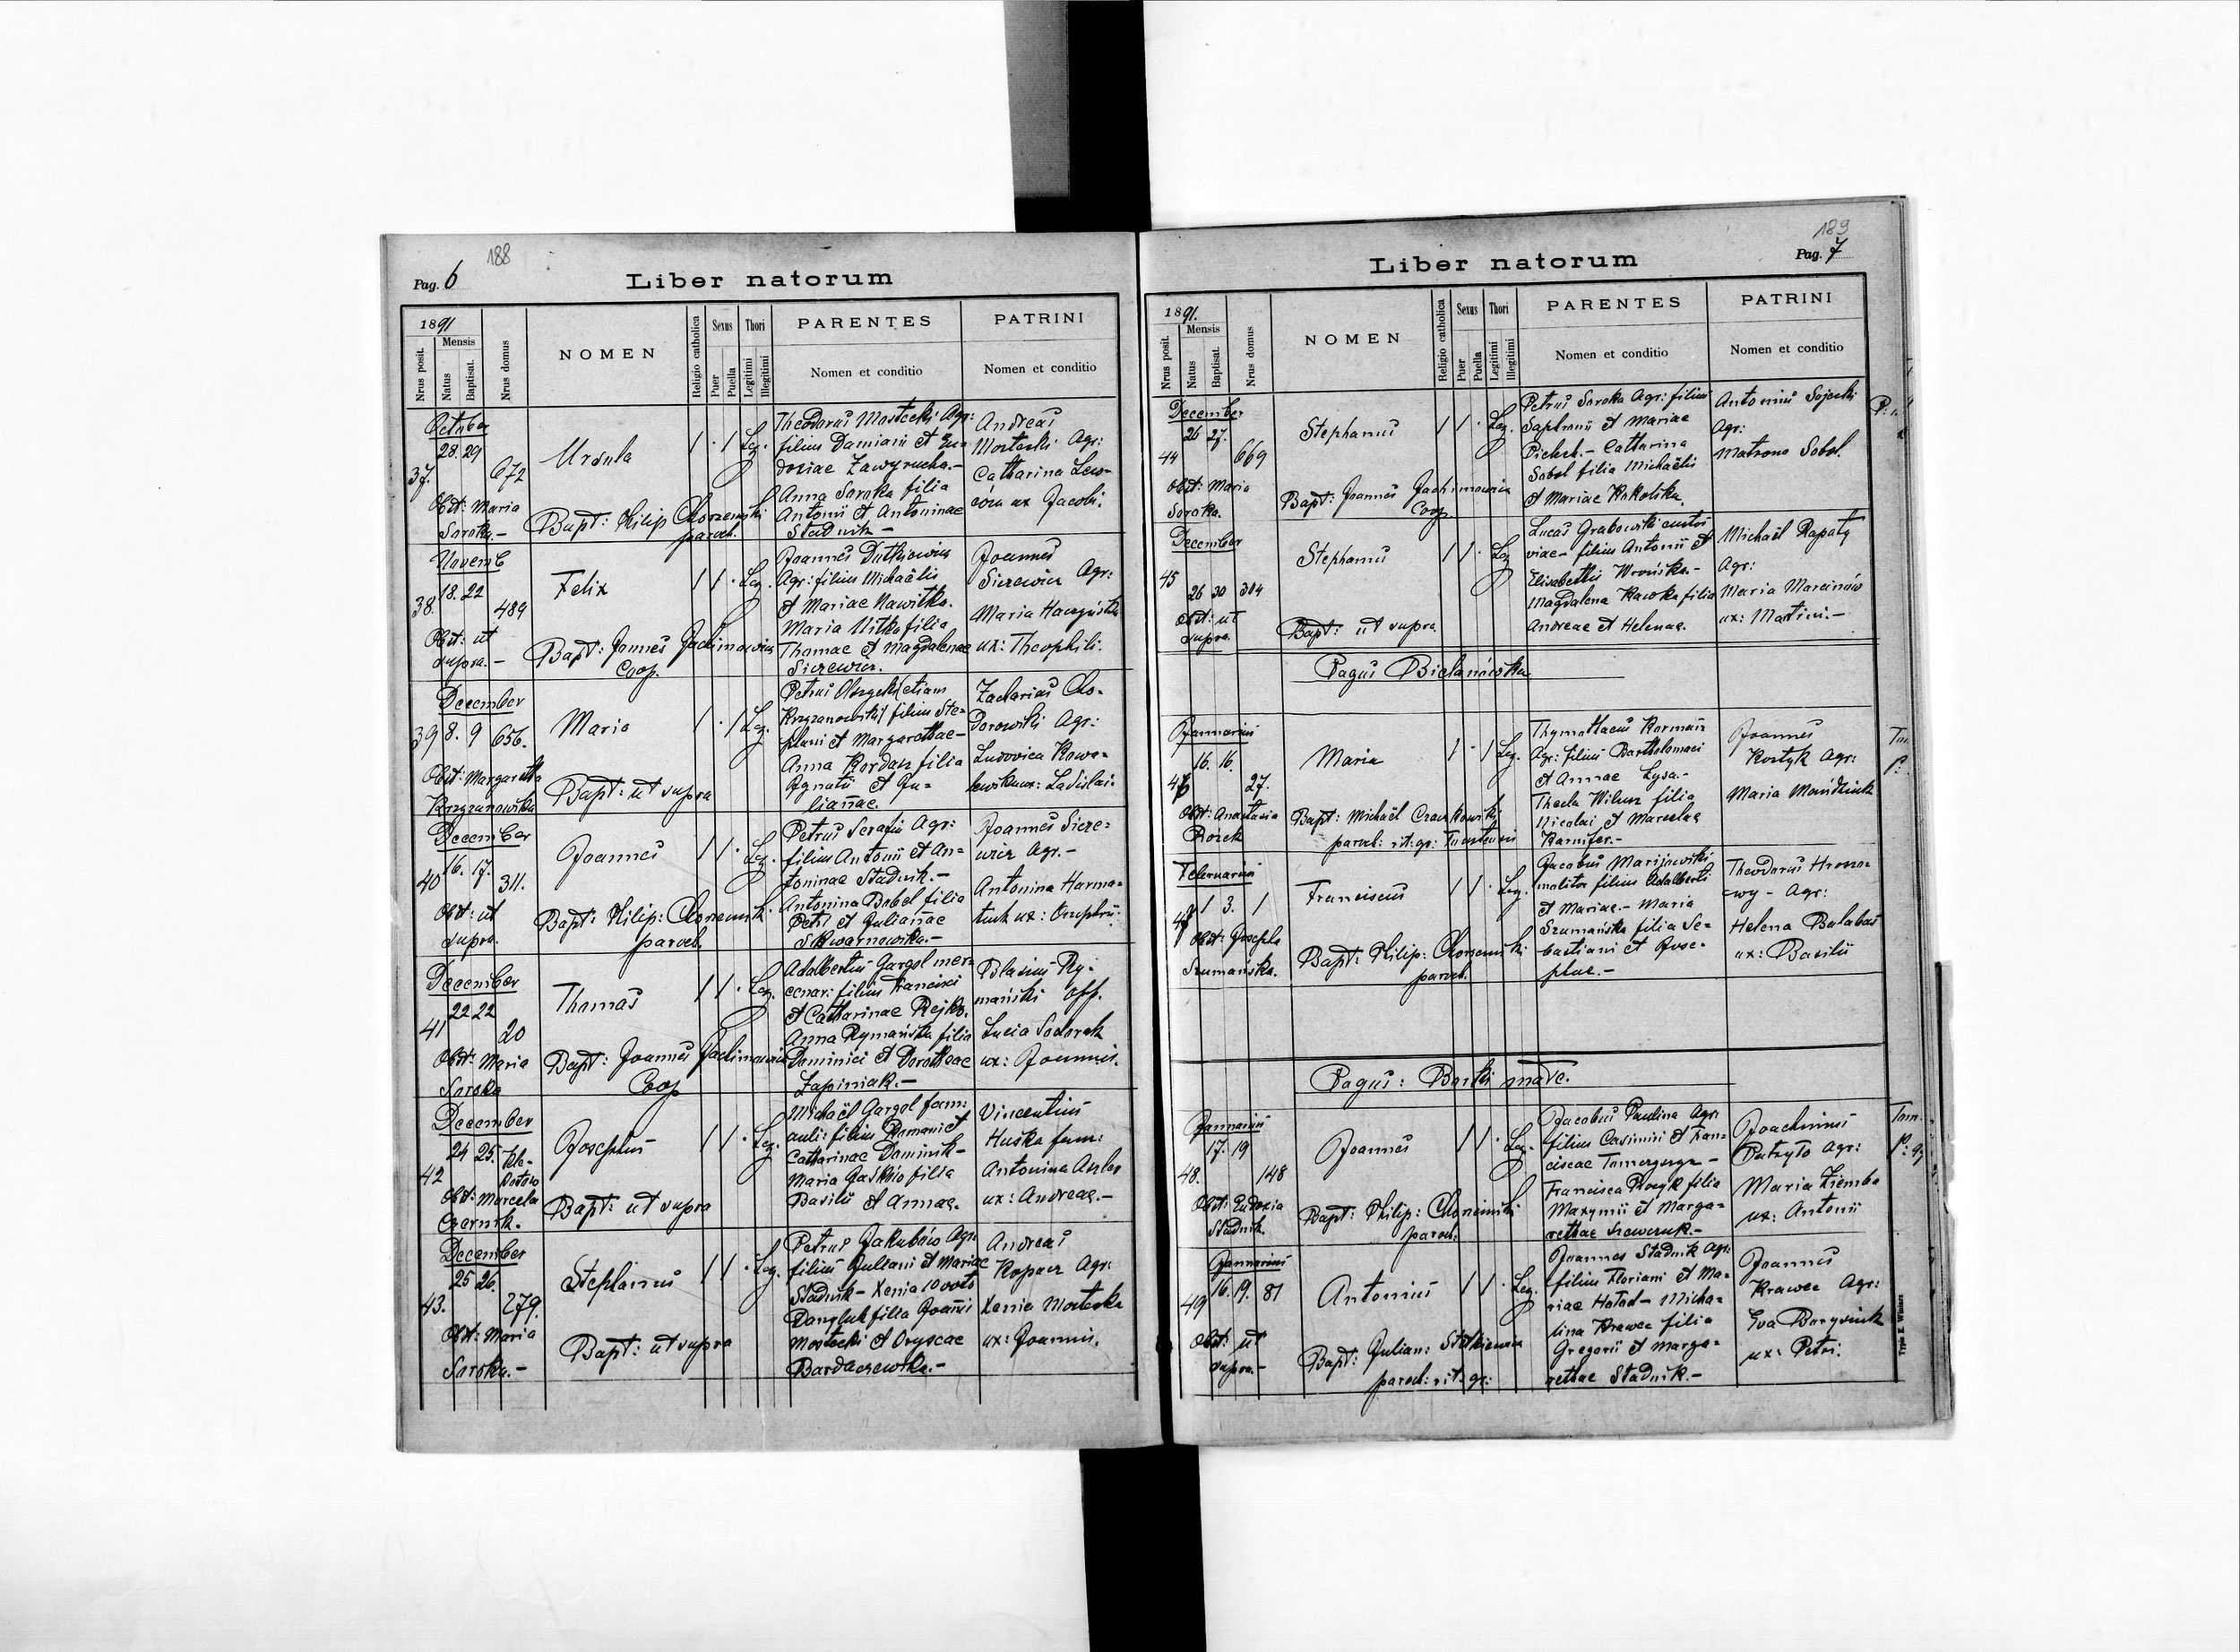 188
Pag. 6
Liber natorum
1891
Mensis
Nrus posit.
Natus
Baptisat.
Nrus domus
NOMEN
Religio catholica
Sexus
Puer
Puella
Thori
Legitimi
Illegitimi
PARENTES
Nomen et conditio
PATRINI
Nomen et conditio
October
28. 29
37.
672
Obst: Maria
Soroka.-
Ursula
Bapt: Philip
paroch.
1 · 1 Leg.
Theodorus Mostecki Agr:
filius Damiani et Eu=
doxiae Zawyrucha.-
Anna Soroka filia
Antonii et Antoninae
Stadnik-
Andreas
Mostecki Agr:
Catharina Lew=
ców ux Jacobi.
Novemb
18. 22
38.
489
Obst: ut
supra.-
Felix
Bapt: Joannes Jachimowicz
Coop.
1 1 · Leg.
Joannes Dutkiewicz
Agr: filius Michaëlis
et Mariae Nawitka.
Maria Witko filia
Thomae et Magdalenae
Sierewicz.
Joannes
Sierewicz Agr:
Maria
ux: Theophili.
December
39 8. 9 656.
Obst: Margaretha
Krzyzanowska
Maria
Bapt: ut supra
1 · 1 Leg.
Petrus (etiam
Krzyzanowski) filius Ste=
phani et Margarethae-
Anna Kordasz filia
Ignatii et Ju=
liannae.
Zacharias Cho=
dorowski Agr:
Ludovica Kowa=
lewska ux: Ladislai.
December
16. 17.
40
311.
Obst: ut
supra.
Joannes
Bapt: Philip:
paroch.
1 1 · Leg.
Petrus Serafin Agr:
filius Antonii et An=
toninae Stadnik.-
Antonina Bobel filia
Petri et Juliannae
Skwarnowska.-
Joannes Siere=
wicz Agr.-
Antonina Harma=
tiuk ux: Onuphrii:
December
22 22
41
20
Obst: Maria
Soroka
Thomas
Bapt: Joannes Jachimowicz
Coop
1 1 · Leg.
Adalbertus Gargol mer=
cenar: filius Francisci
et Catharinae Rejko.
Anna Rymańska filia
Dominici et Dorotheae
Łapiniak.-
Blasius Ry=
mański off.
Lucia Sodorak
ux: Joannis.
December
24 25.
42
Obst: Marcela
Czernik.
Josephus
Bapt: ut supra
1 1 · Leg.
Michaël Gargol fam:
filius Romani et
Catharinae Dominik-
Maria Jaśków filia
Basilii et Annae.
Vincentius
Huska fam:
Antonina
ux: Andreae.-
December
25 26.
43.
279.
Obst: Maria
Soroka.-
Stephanus
Bapt: ut supra
1 1 · Leg.
Petrus Jakubów Agr:
filius Juliani et Mariae
Stadnik- Xenia
filia Joannis
Mostecki et Oryscae
Bardaczewska.-
Andreas
Kopacz Agr:
Xenia Mostecka
ux: Joannis.
189
Pag. 7
Liber natorum
1891.
Mensis
Nrus posit.
Natus
Baptisat.
Nrus domus
NOMEN
Religio catholica
Sexus
Puer
Puella
Thori
Legitimi
Illegitimi
PARENTES
Nomen et conditio
PATRINI
Nomen et conditio
December
26 27.
44
669
Obst: Maria
Soroka.
Stephanus
Bapt: Joannes Jachimowicz
Coop.
1 1 · Leg.
Petrus Soroka Agr: filius
Saphronii et Mariae
Catharina
Sobol filia Michaëlis
et Mariae
Antonius Sajecki
Agr:
Matrona Sobol.
December
45
26 30 304
Obst: ut
supra.
Stephanus
Bapt: ut supra
1 1 · Leg
Lucas Grabowski custos
viae- filius Antonii et
Elisabethis Wrońska.-
Magdalena Kawka filia
Andreae et Helenae.
Michaël Rapaty
Agr:
Maria Marcinów
ux: Martini.-
Pagus Bielanówka
Januarius
16. 16.
46
27.
Obst: Anastasia
Maria
Bapt: Michaël
paroch: rit: gr:
1 · 1 Leg
Agr: filius Bartholomaei
et Annae Lysa.-
Thecla filia
Nicolai et Marcelae
Joannes
Kostyk Agr:
Maria
Februarius
47
1 3. 1
Obst: Josepha
Szumańska.
Franciscus
Bapt: Philip:
paroch.
1 1 · Leg.
Jacobus Marijowski
molitor filius Adalberti
et Mariae.- Maria
Szumańska filia Se=
bastiani et Jose=
phae.-
Theodorus Hromo=
wy - Agr:
Helena Balabas
ux: Basilii
Pagus: Borki małe.
Januarius
17. 19
48.
148
Obst: Eudoxia
Stadnik.
Joannes
Bapt: Philip:
paroch.
1 1 · Leg.
Jacobus Paulina Agr:
filius Casimiri et Fran=
ciscae
Francisca filia
Maxymii et Marga=
rethae Szewczuk.-
Joachimus
Patryło Agr:
Maria Ziemba
ux: Antonii
Januarius
16. 19. 81
49
Obst: ut
supra.-
Antonius
Bapt: Julian:
paroch: rit: gr:
1 1 · Leg.
Joannes Stadnik Agr:
filius Floriani et Ma=
riae Hołod- Micha=
lina Krawec filia
Gregorii et Marga=
rethae Stadnik.-
Joannes
Krawec Agr:
Eva
ux: Petri.
Typis E. Winiarz